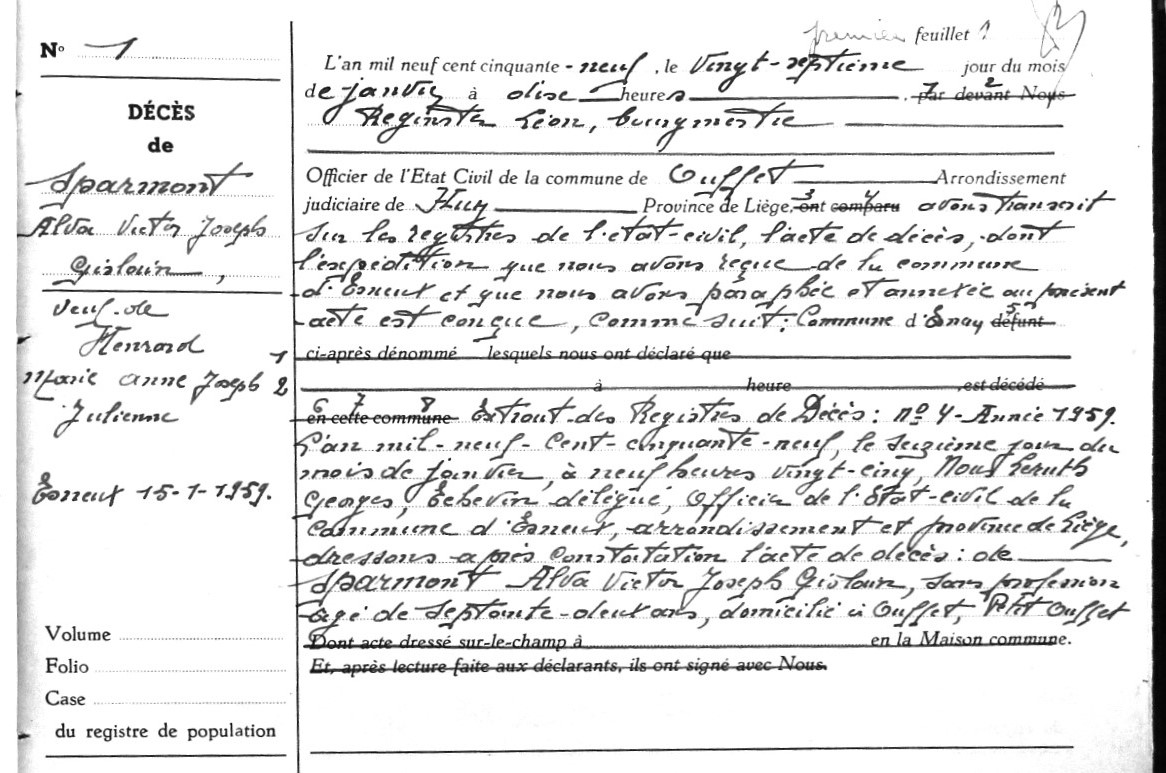 N° 1
DÉCÈS
de
Sparmont
Alva Victor Joseph
Gislain,
veuf de
Henrard
Marie Anne Joseph
Julienne
Esneux 15-1-1959.
Volume
Folio
Case
du registre de population
premier feuillet 1
L'an mil neuf cent cinquante-neuf, le vingt-septième jour du mois
de janvier à dix heures 1 par devant Nous 2
Reginster Léon, bourgmestre
Officier de l'Etat Civil de la commune de Ouffet Arrondissement
judiciaire de Huy Province de Liège, 3 ont comparu 4 avons transcrit
sur les registres de l'état-civil, l'acte de décès, dont
l'expédition que nous avons reçue de la commune
d'Esneux et que nous avons paraphée et annexée au présent
acte est conçue, comme suit: Commune d' défunt 5
1 ci-après dénommé lesquels nous ont déclaré que
2 à heure est décédé
6 7 8 en cette commune Extrait des Registres de Décès: n° 4 - Année 1959.
L'an mil-neuf-cent-cinquante-neuf, le seizième jour du
mois de janvier, à neuf heures vingt-cinq, Nous Leruth
Georges, Echevin délégué, Officier de l'Etat-civil de la
Commune d'Esneux, arrondissement et province de Liège,
dressons après constatation l'acte de décès: de
Sparmont Alva Victor Joseph Gislain, sans profession
âgé de septante-deux ans, domicilié à Ouffet, Petit Ouffet
Dont acte dressé sur-le-champ à en la Maison commune.
Et, après lecture faite aux déclarants, ils ont signé avec Nous.